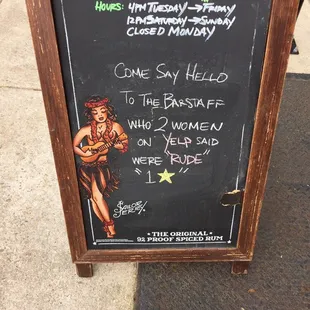 HOURS: 4PM TUESDAY → FRIDAY
12PM SATURDAY → SUNDAY
CLOSED MONDAY
COME SAY HELLO
TO THE BARSTAFF
WHO 2 WOMEN
ON YELP SAID
WERE "RUDE"
"1 ★"
SAILOR
JERRY
★ THE ORIGINAL ★
92 PROOF SPICED RUM